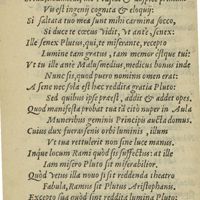 Vix est ingenij cognita & eloquij:
Si saltata tuo mea sunt mihi carmina socco,
Si duce te cæcus vidit, vt antè, senex:
Ille senex Plutus, qui, te miserante, recepto
Lumine tam gratus, tam memor éstque tui:
Vt tu ille antè Malus medius, medicus bonus inde
Nunc sis, quod puero nominis omen erat:
A sene nec solâ est hæc reddita gratia Pluto:
Sed quibus ipse præest, addit & addet opes.
Quod manifesta probat tua tã citò nuper in Aula
Muneribus geminis Principis aucta domus.
Cuius dux fueras senis orbi luminis, illum
Vt tua rettulerit non sine luce manus.
Inque locum Rami quòd sis suffectus: at ille
Iam misero Pluto sit miserabilior.
Quòd vetus illa nouo sit reddenda theatro
Fabula, Ramus sit Plutus Aristophanis.
Excepto sua quòd sint reddita lumina Pluto: